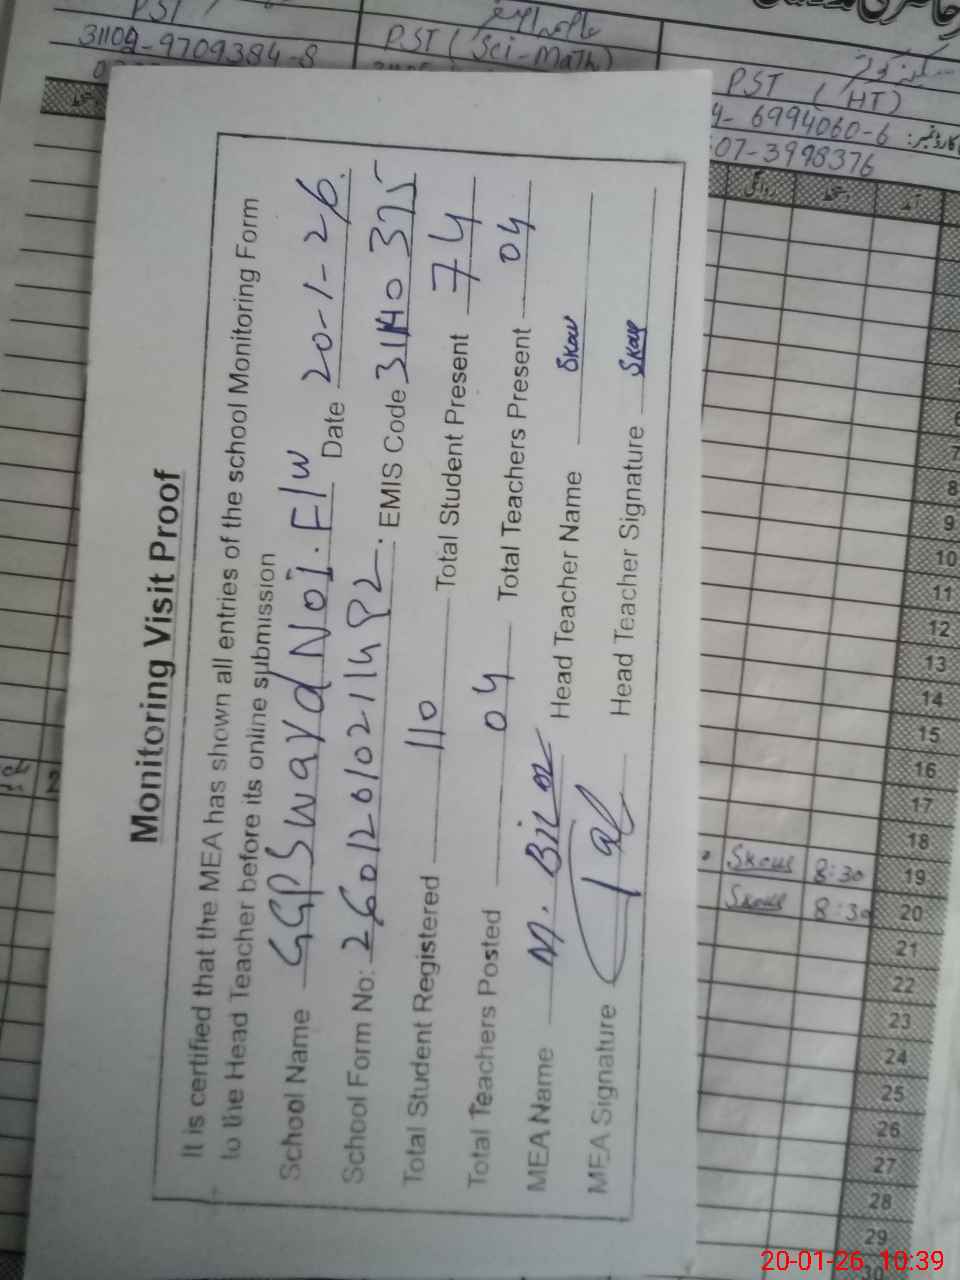 PST
31104-9709384-8
PST (Sci-Math)
PST (HT)
4-6994060-6
07-3998376
Monitoring Visit Proof
It is certified that the MEA has shown all entries of the school Monitoring Form
to the Head Teacher before its online submission
School Name GGPS Wayd Noi. Flw Date 20-1-26.
School Form No: 26012010211492. EMIS Code 31140375
Total Student Registered 110 Total Student Present 74
Total Teachers Posted 04 Total Teachers Present 04
MEA Name M. Bilal Head Teacher Name
MEA Signature Head Teacher Signature
7
8
9
10
11
12
13
14
15
16
17
18
8:30 19
8:30 20
21
22
23
24
25
26
27
28
29
30
20-01-26 10:39